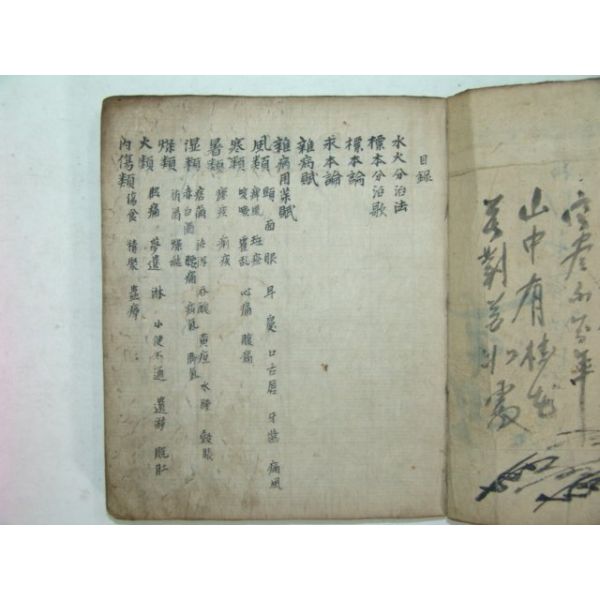 目錄
水火分治法
標本分治歌
標本論
求本論
雜病賦
雜病用藥賦
風類 頭 面 眼 耳 鼻 口舌唇 牙齒 痛風
痺風 斑疹
寒類 咳嗽 霍亂 心痛 腹痛
暑類 瘧疾 痢疾
湿類 泄瀉 吞酸 黃疸 水腫 鼓脹
赤白濁 腰痛 疝氣 脚氣
燥類 消渴 燥結
火類 眩痛 夢遺 淋 小便不通 遺溺 脫肛
內傷類 傷食 積聚 蟲
山中有桂花